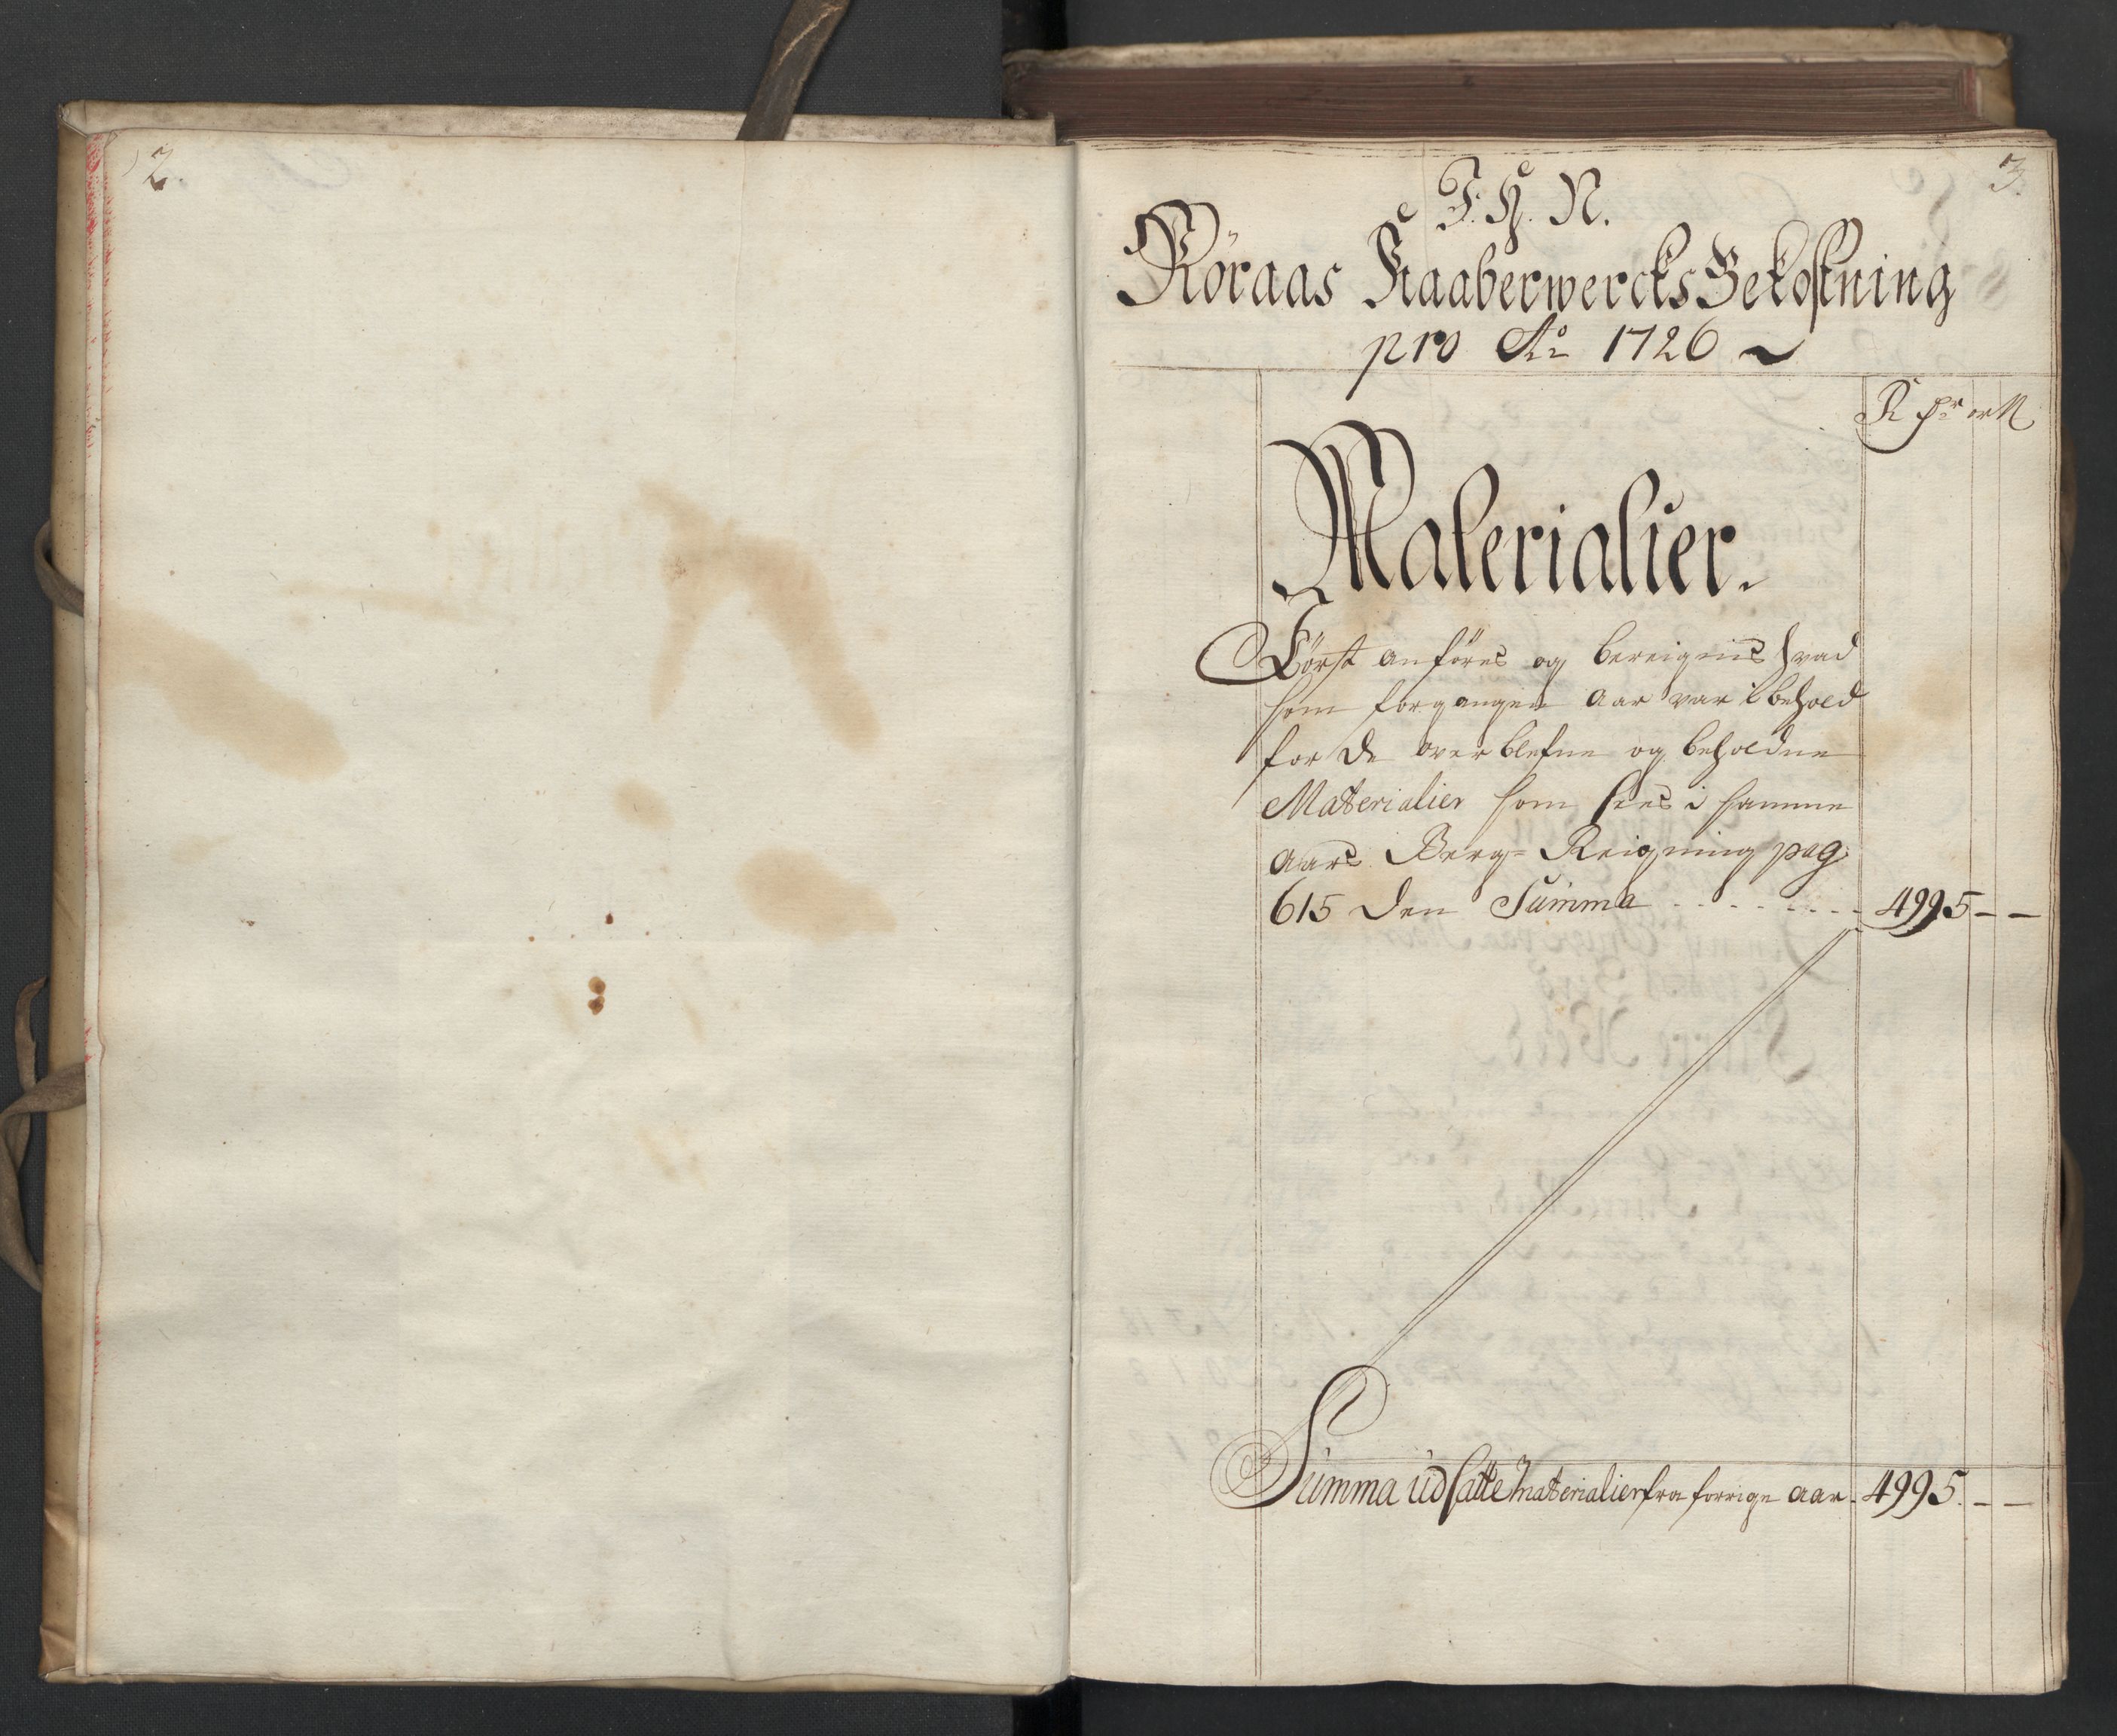 2.
3.
J. H. N.
Röraas Kaaberwercks Bekostning
pro Ao 1726
R
Materialier.
Först anföres og bereignis hvad
som forgangen Aar var i behold
for de overblefne og beholdne
Materialier som sees i samme
Aars Berg- Reigning pag:
615 den Summa . . . . . . . . 4995 – –
Summa udsatte Materialier fra forrige Aar. 4995. – –